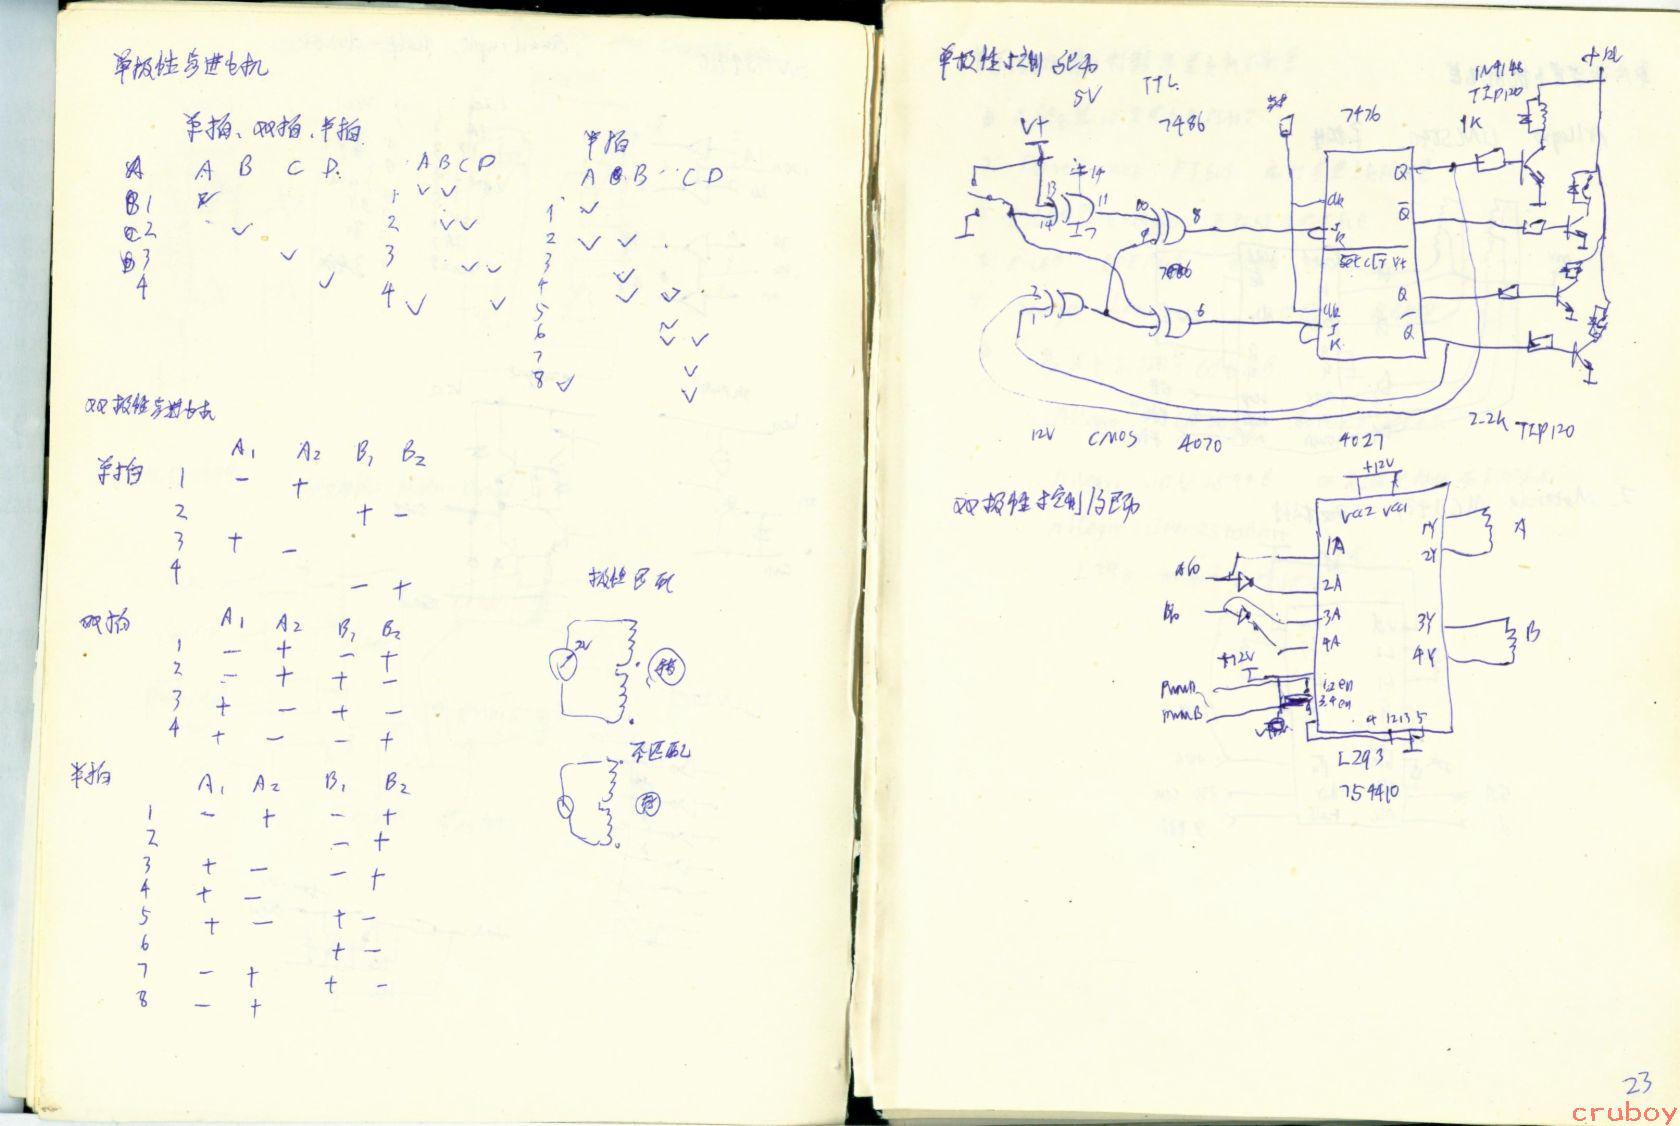 单极性步进电机
单拍、双拍、半拍
A A B C D.
B1 ✓
C2 ✓
D3 ✓
4 ✓
A B C D
1 ✓ ✓
2 ✓ ✓
3 ✓ ✓
4 ✓ ✓
半拍
A B C D
1 ✓
2 ✓ ✓
3 ✓
4 ✓ ✓
5 ✓
6 ✓ ✓
7 ✓
8 ✓ ✓
双极性步进电机
A1 A2 B1 B2
单拍 1 − +
2 + −
3 + −
4 − +
双拍 A1 A2 B1 B2
1 − + − +
2 − + + −
3 + − + −
4 + − − +
半拍 A1 A2 B1 B2
1 − + − +
2 − +
3 + − − +
4 + −
5 + − + −
6 + −
7 − + + −
8 − +
极性匹配
2V
不匹配
单极性控制
5V TTL
V+
7486
7476
1N4148
TIP120
1K
+12
14
13
11
7
10
9
8
Q
clk
J
K
Q
Set clr V+
7486
2
1
6
Q
clk
J
K
Q
12V CMOS 4070 4027 2.2K TIP120
双极性控制
+12V
Vcc2 Vcc1
1A
2A
3A
4A
1Y
2Y
A
3Y
4Y
B
+12V
PWMA
PWMB
1,2en
3.4en
4 12 13 5
L293
754410
23
cruboy